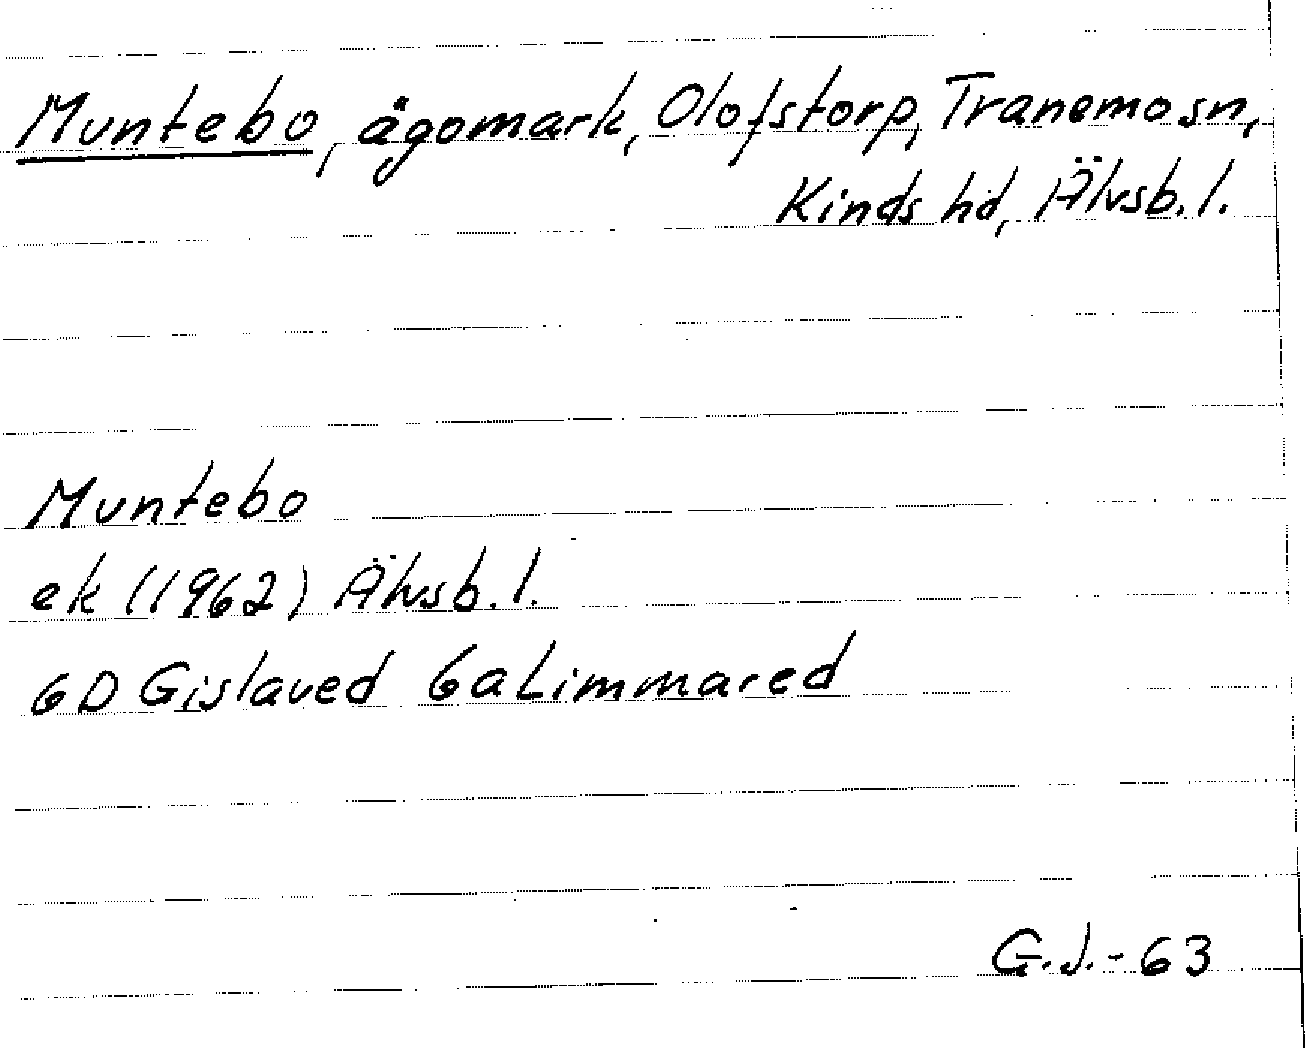 Muntebo, ägomark, Olofstorp, Tranemo sn,
Kinds hd, Älvsb. l.
Muntebo
ek (1962) Älvsb. l.
6D Gislaved 6a Limmared
G.J.-63